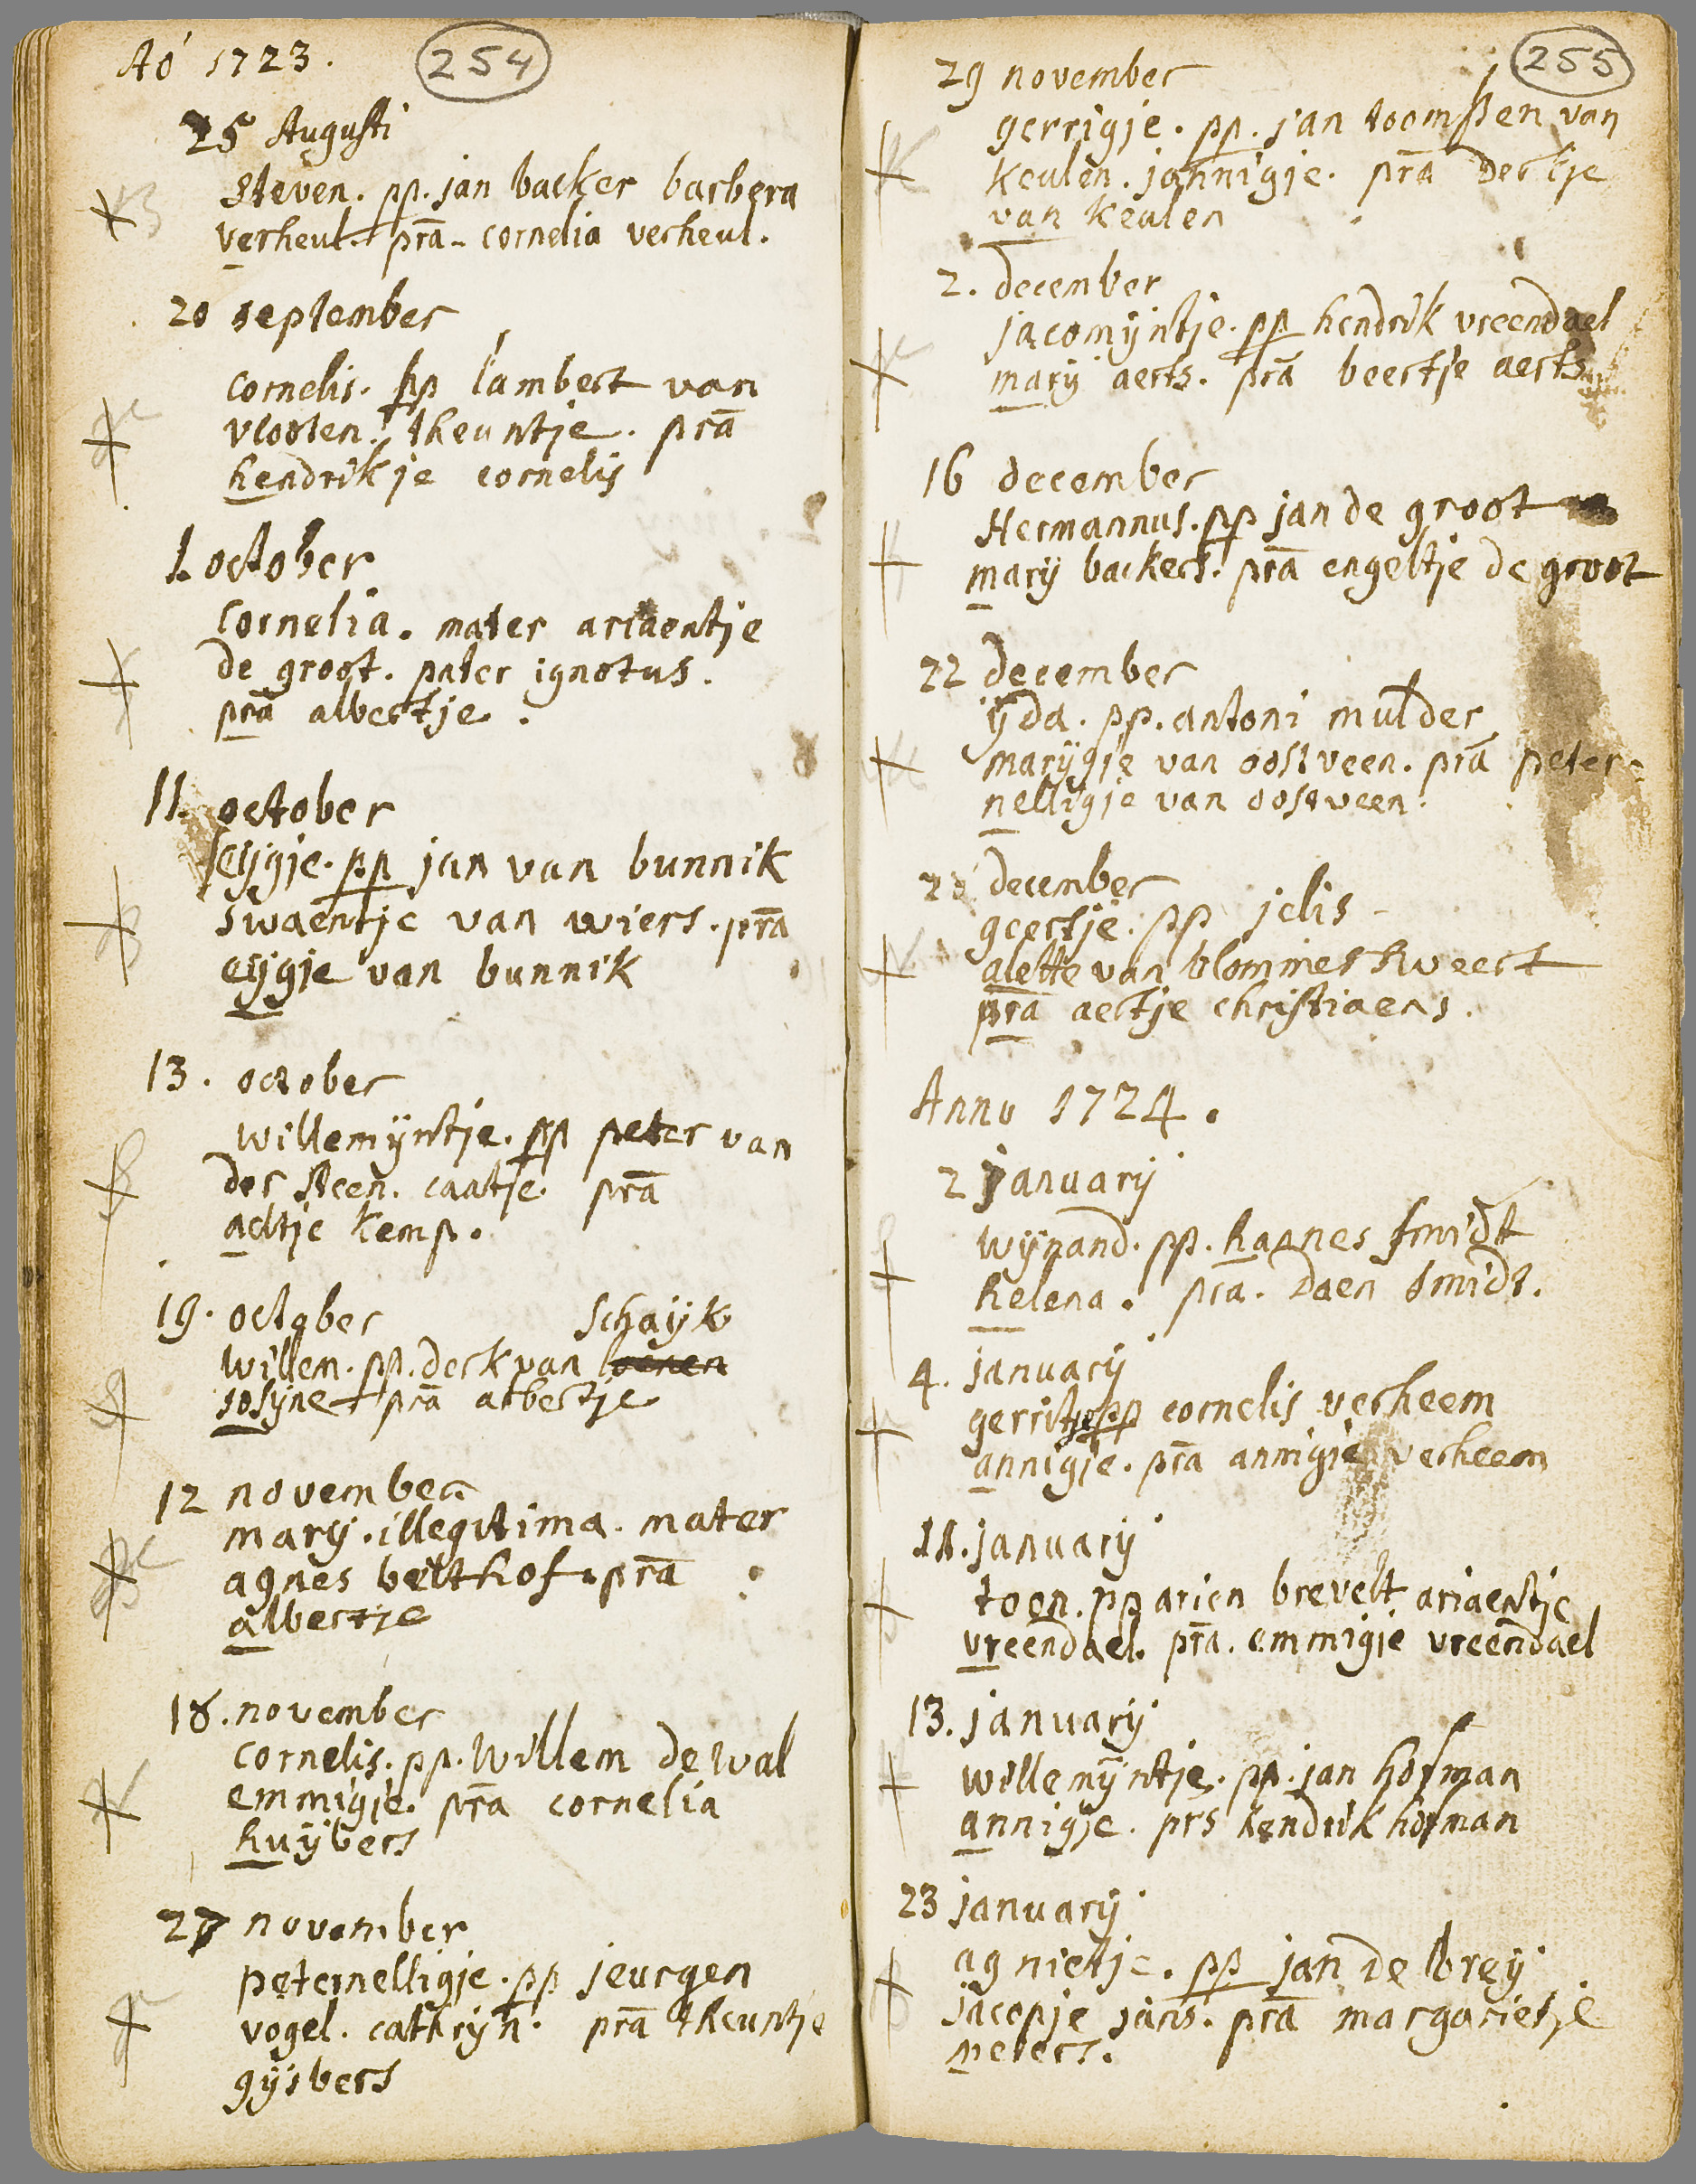 Aó 1723.
254
25 Augusti
steven. pp. jan backer barbera
verheul. prā. cornelia verheul.
20 september
cornelis. pp lambert van
vlooten. theuntje. prā
hendrikje cornelis
1. october
Cornelia. mater ariaentje
de groot. pater ignotus.
prā albertje.
11. october
eijgje. pp jan van bunnik
swaentje van wiers. prā
eijgje van bunnik
13. october
willemijntje. pp peter van
der steen. caatje. prā
aeltje kemp.
19. october
Schaijk
willem. pp. derk van
sosijne prā albertje
12 november
marij. illegitima. mater
agnes belthof. prā
albertje
18. november
cornelis. pp. willem de wal
emmigje. prā cornelia
huijbers
27 november
peternelligje. pp jeurgen
vogel. cathrijn. prā theuntje
gijsbers
255
29 november
gerrigje. pp. jan toomssen van
keulen. jannigje. prā derkje
van keulen
2. december
jacomijntje. pp hendrik vreendael
marij aerts. prā beertje aerts
16 december
Hermannus. pp jan de groot
marij backers. prā engeltje de groot
22 december
ijda. pp. antoni mulder
marijgje van oostveen. prā peter-
nelligje van oostveen.
december
geertje. pp jelis
alette van blommerstweert
prā aeltje christiaens.
Anno 1724.
2 januarij
wijnand. pp. hannes smidt
helena. prā. daen smidt.
4. januarij
gerritje pp cornelis verheem
annigje. prā annigje verheem
11. januarij
toon. pp arien brevelt ariaentje
vreendael. prā. emmigje vreendael
13. januarij
willemijntje. pp. jan hofman
annigje. prs hendrik hofman
23 januarij
agnietje. pp jan de brey
jacopje jans. prā margarietje
peters.